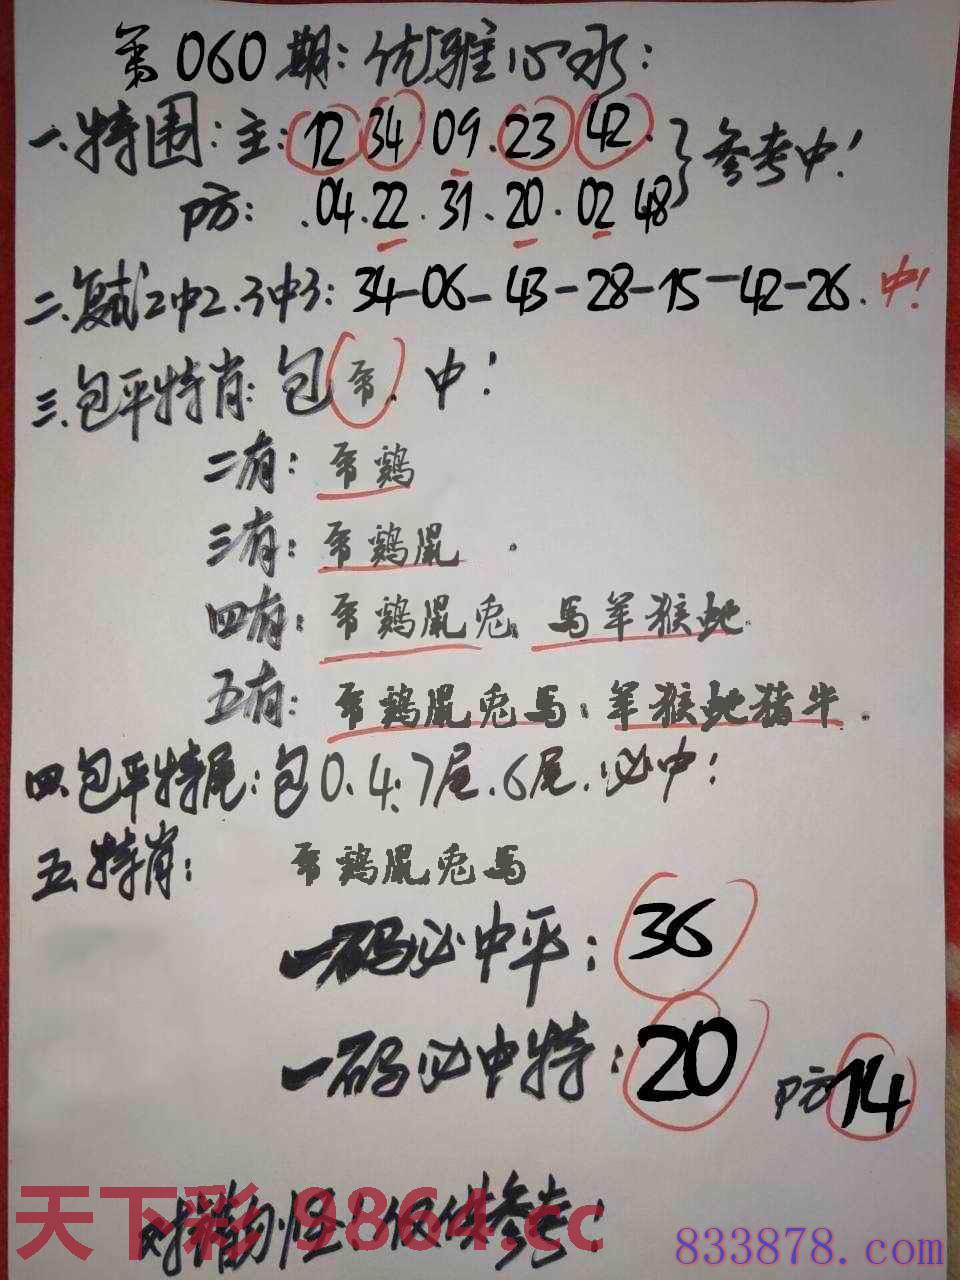 第060期:优雅心水:
一.特围:主:12 34.09.23 42.}参考中!
防:.04.22.31.20.02 48
二.复式2中2.3中3:34-06-43-28-15-42-26.中!
三.包平特肖:包帝.中!
二有:帝鷄
三有:帝鷄鼠.
四有:帝鷄鼠兎.馬羊猴虵.
五有:帝鷄鼠兎馬.羊猴虵猪牛.
四.包平特尾:包0.4.7尾.6尾.必中!
五.特肖:帝鷄鼠兎馬
一码必中平:36
一码必中特:20 防14
天下彩 9864.cc
833878.com